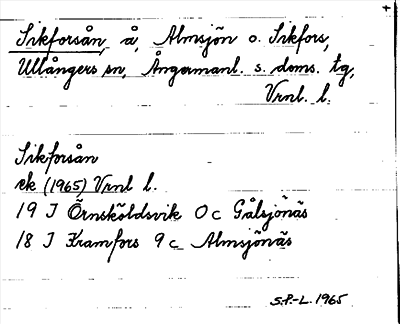 Sikforsån, å, Almsjön o. Sikfors,
Ullångers sn, Ångermanl. s. doms. tg,
Vrnl. l.
Sikforsån
ek (1965) Vrnl l.
19 J Örnsköldsvik 0 c Gålsjönäs
18 J Kramfors 9 c Almsjönäs
S.P.-L. 1965